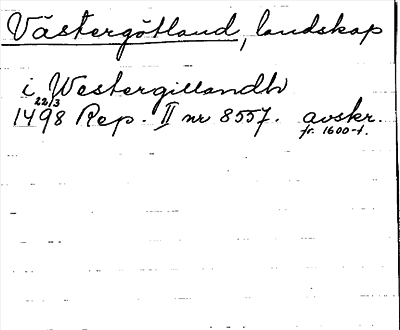 Västergötland, landskap
i Westergillandh
22/3
1498 Rep. II nr 8557. avskr.
fr. 1600-t.